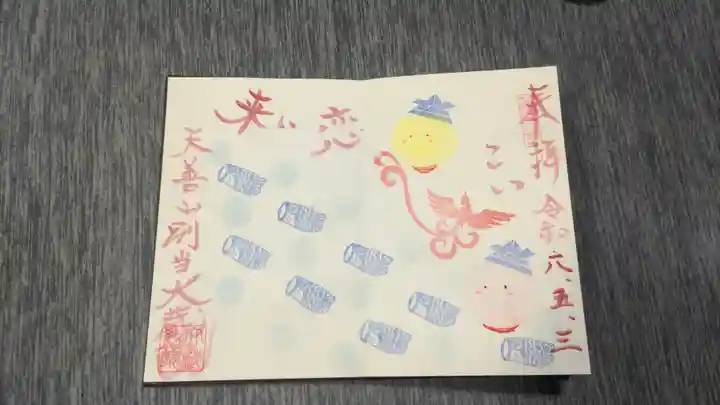 奉拝
令和六、五、三
こい
恋
来い
天善山別当大